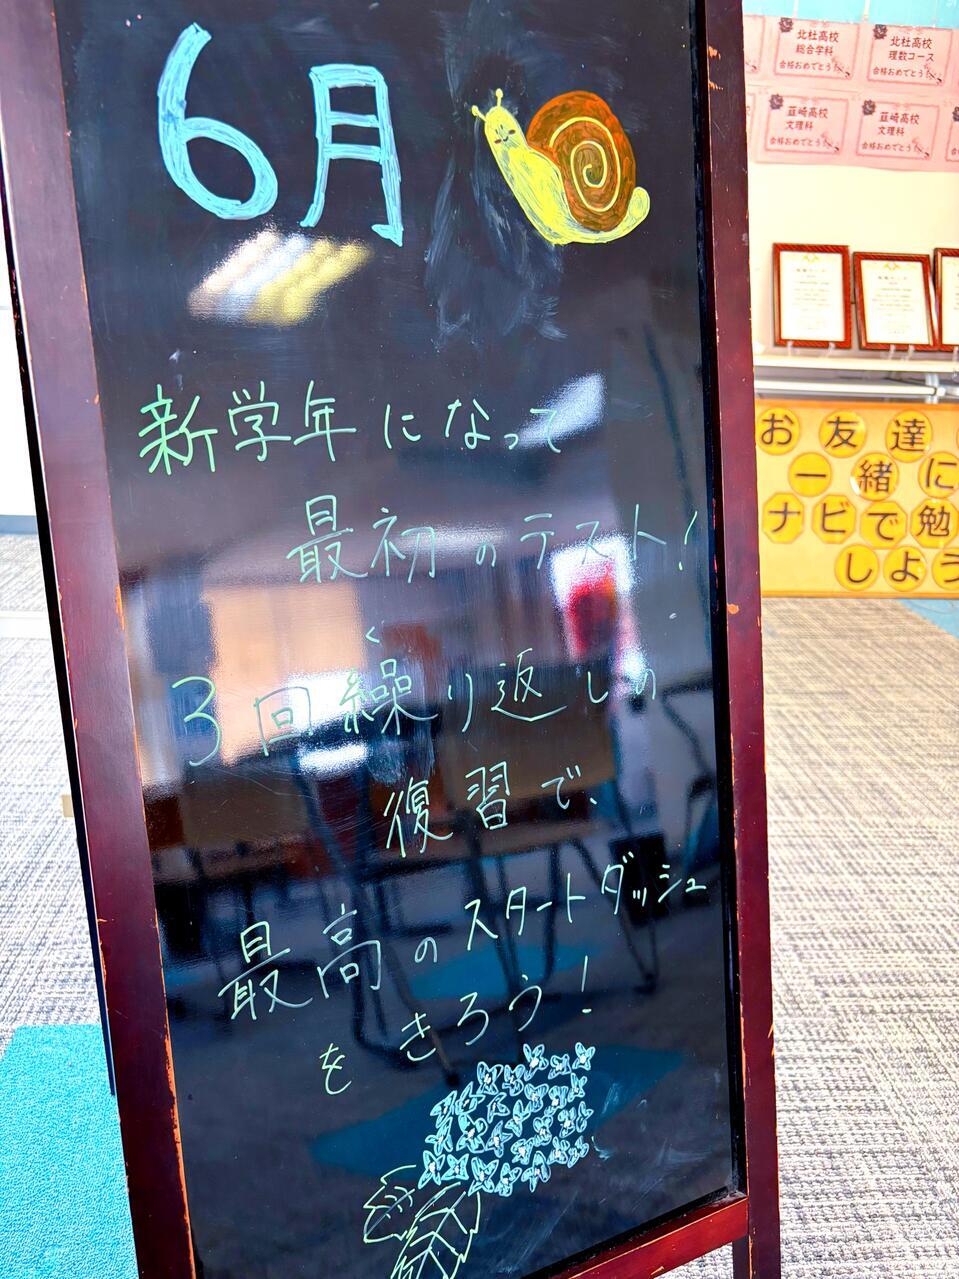 6月
新学年になって
最初のテスト!
く
3回繰り返しの
復習で、
最高のスタートダッシュ
をきろう!
北杜高校
総合学科
合格おめでとう!
北杜高校
理数コース
合格おめでとう!
韮崎高校
文理科
合格おめでとう!
韮崎高校
文理科
合格おめでとう!
お友達
一緒に
ナビで勉
しよう